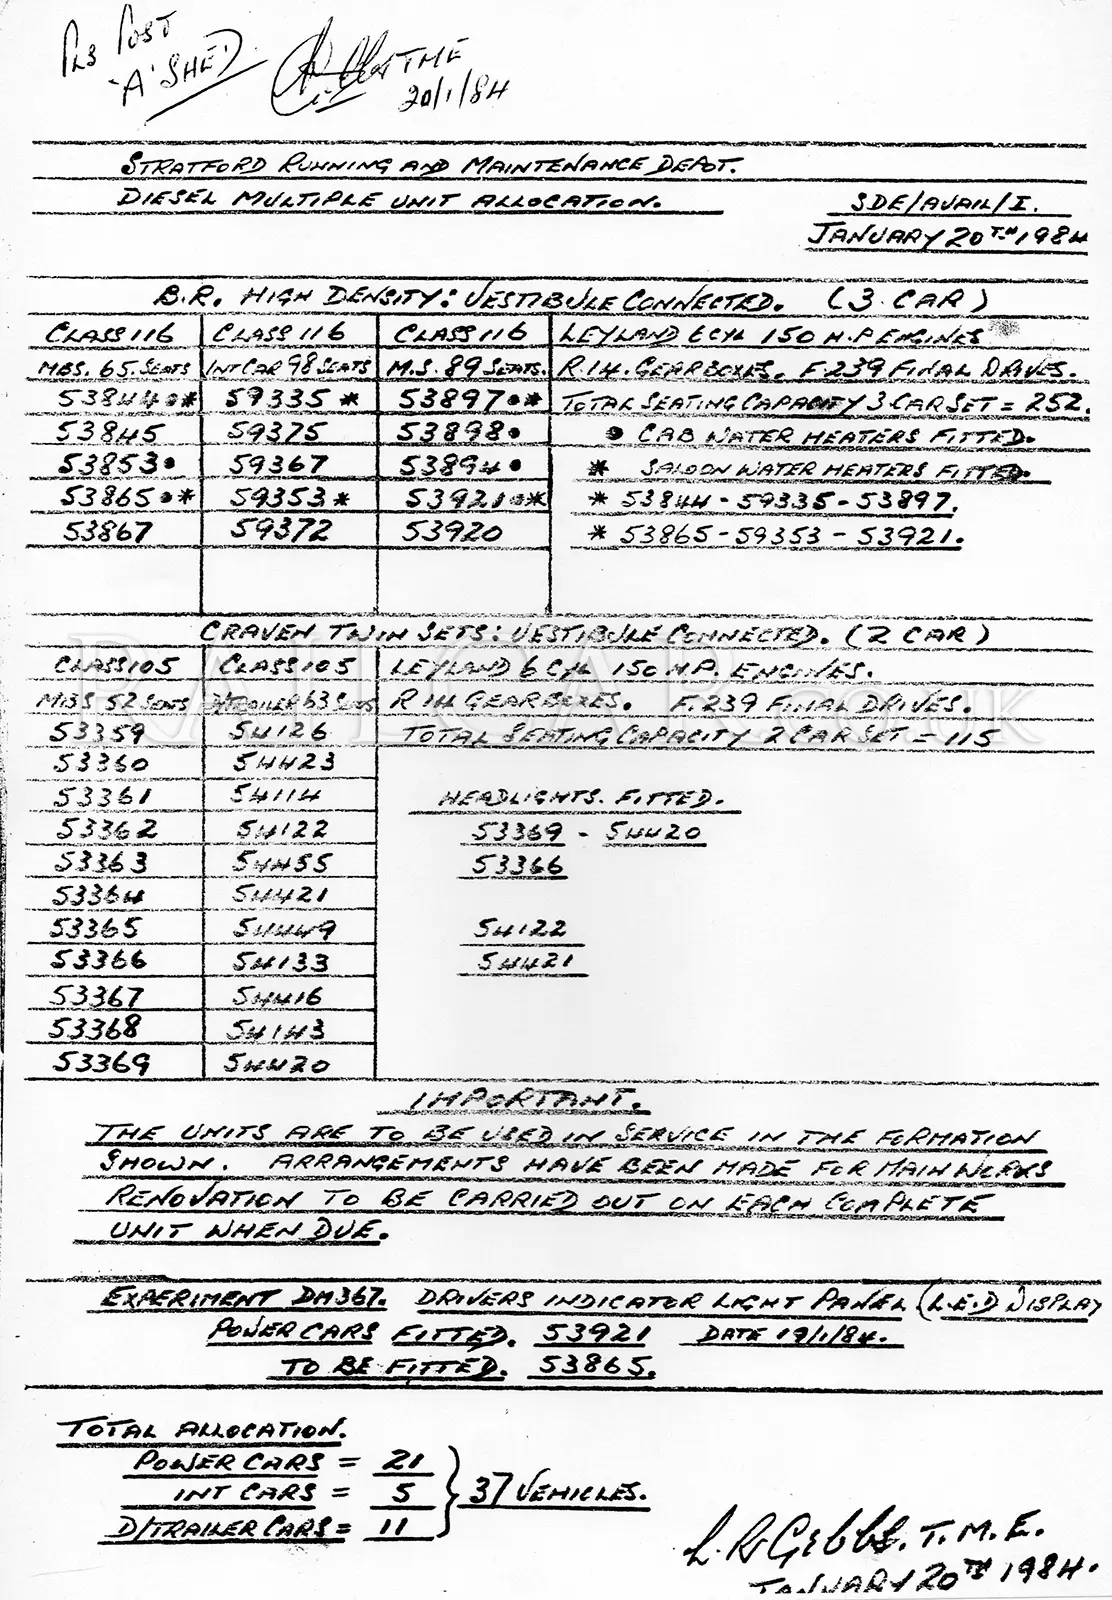 PLS POST
'A' SHED
TME
20/1/84
STRATFORD RUNNING AND MAINTENANCE DEPOT.
DIESEL MULTIPLE UNIT ALLOCATION. SDE/AVAIL/I.
JANUARY 20TH 1984
B.R. HIGH DENSITY: VESTIBULE CONNECTED. (3 CAR)
CLASS 116 CLASS 116 CLASS 116 LEYLAND 6 CYL 150 H.P ENGINES
MBS. 65. SEATS INT CAR 98 SEATS M.S. 89 SEATS. R.14. GEARBOXES. F.239 FINAL DRIVES.
53844●* 59335* 53897●* TOTAL SEATING CAPACITY 3 CAR SET = 252.
53845 59375 53898● ● CAB WATER HEATERS FITTED.
53853● 59367 53894● * SALOON WATER HEATERS FITTED.
53865●* 59353* 53921●* * 53844 - 59335 - 53897.
53867 59372 53920 * 53865 - 59353 - 53921.
CRAVEN TWIN SETS: VESTIBULE CONNECTED. (2 CAR)
CLASS 105 CLASS 105 LEYLAND 6 CYL 150 H.P. ENGINES.
MBS 52 SEATS D/TRAILER 63 SEATS R 14 GEARBOXES. F.239 FINAL DRIVES.
53359 54126 TOTAL SEATING CAPACITY 2 CAR SET = 115
53360 54423
53361 54114 HEADLIGHTS. FITTED.
53362 54122 53369 - 54420
53363 54455 53366
53364 54421
53365 54449 54122
53366 54133 54421
53367 54416
53368 54143
53369 54420
RAILCAR.co.uk
IMPORTANT.
THE UNITS ARE TO BE USED IN SERVICE IN THE FORMATION
SHOWN. ARRANGEMENTS HAVE BEEN MADE FOR MAIN WORKS
RENOVATION TO BE CARRIED OUT ON EACH COMPLETE
UNIT WHEN DUE.
EXPERIMENT DM367. DRIVERS INDICATOR LIGHT PANEL (L.E.D DISPLAY
POWER CARS FITTED. 53921 DATE 19/1/84.
TO BE FITTED. 53865.
TOTAL ALLOCATION.
POWER CARS = 21
INT CARS = 5 } 37 VEHICLES.
D/TRAILER CARS = 11
L. R. Gibbs. T.M.E.
JANUARY 20TH 1984.